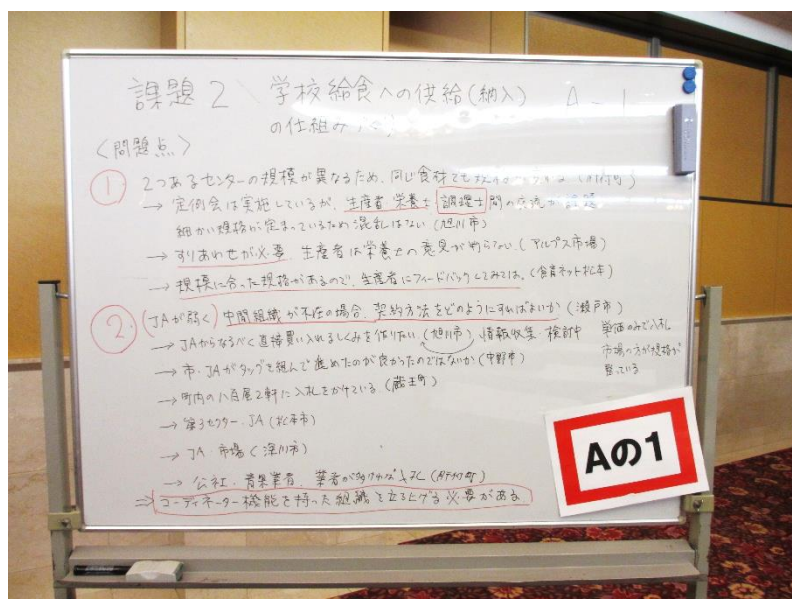 課題2 学校給食への供給(納入) A-1
の仕組みづくり
<問題点>
① 2つあるセンターの規模が異なるため、同じ食材でも
→ 定例会は実施しているが、生産者 栄養士 調理士 間の交流が課題
細かい規格が定まっているため混乱はない(旭川市)
→ すりあわせが必要 生産者は栄養士の意見が判らない(アルプス市場)
→ 規模に合った規格があるので、生産者にフィードバックしてみては。(食育ネット松本)
② (JAが弱く)中間組織が不在の場合、契約方法をどのようにすればよいか(瀬戸市)
→ JAからなるべく直接買い入れるしくみを作りたい(旭川市)情報収集・検討中
単価のみで入札
市場の方が規格が
整っている
→ 市・JAがタッグを組んで進めたのが良かったのではないか(中野市)
→ 町内の八百屋2軒に入札をかけている(蔵王町)
→ 第3セクター・JA(松本市)
→ JA・市場(深川市)
→ 公社・青果業者 業者が
⇒ コーディネーター機能を持った組織を立ち上げる必要がある
Aの1